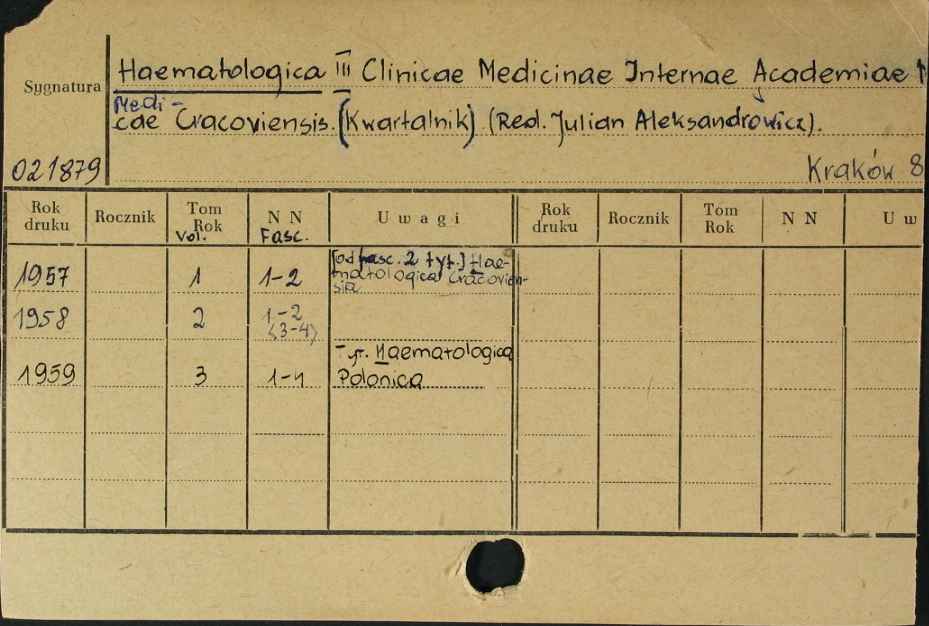 Haematologica III Clinicae Medicinae Internae Academiae
Sygnatura
Medi-
cae Cracoviensis. (Kwartalnik) (Red. Julian Aleksandrowicz).
021879 Kraków 8
Rok druku Rocznik Tom Rok Vol. N N Fasc. Uwagi Rok druku Rocznik Tom Rok N N Uw
[od fasc. 2 tyt.] Hae-
1957 1 1-2 matologica Cracovien-
sia
1958 2 1-2
(3-4)
tyt. Haematologica
1959 3 1-4 Polonica